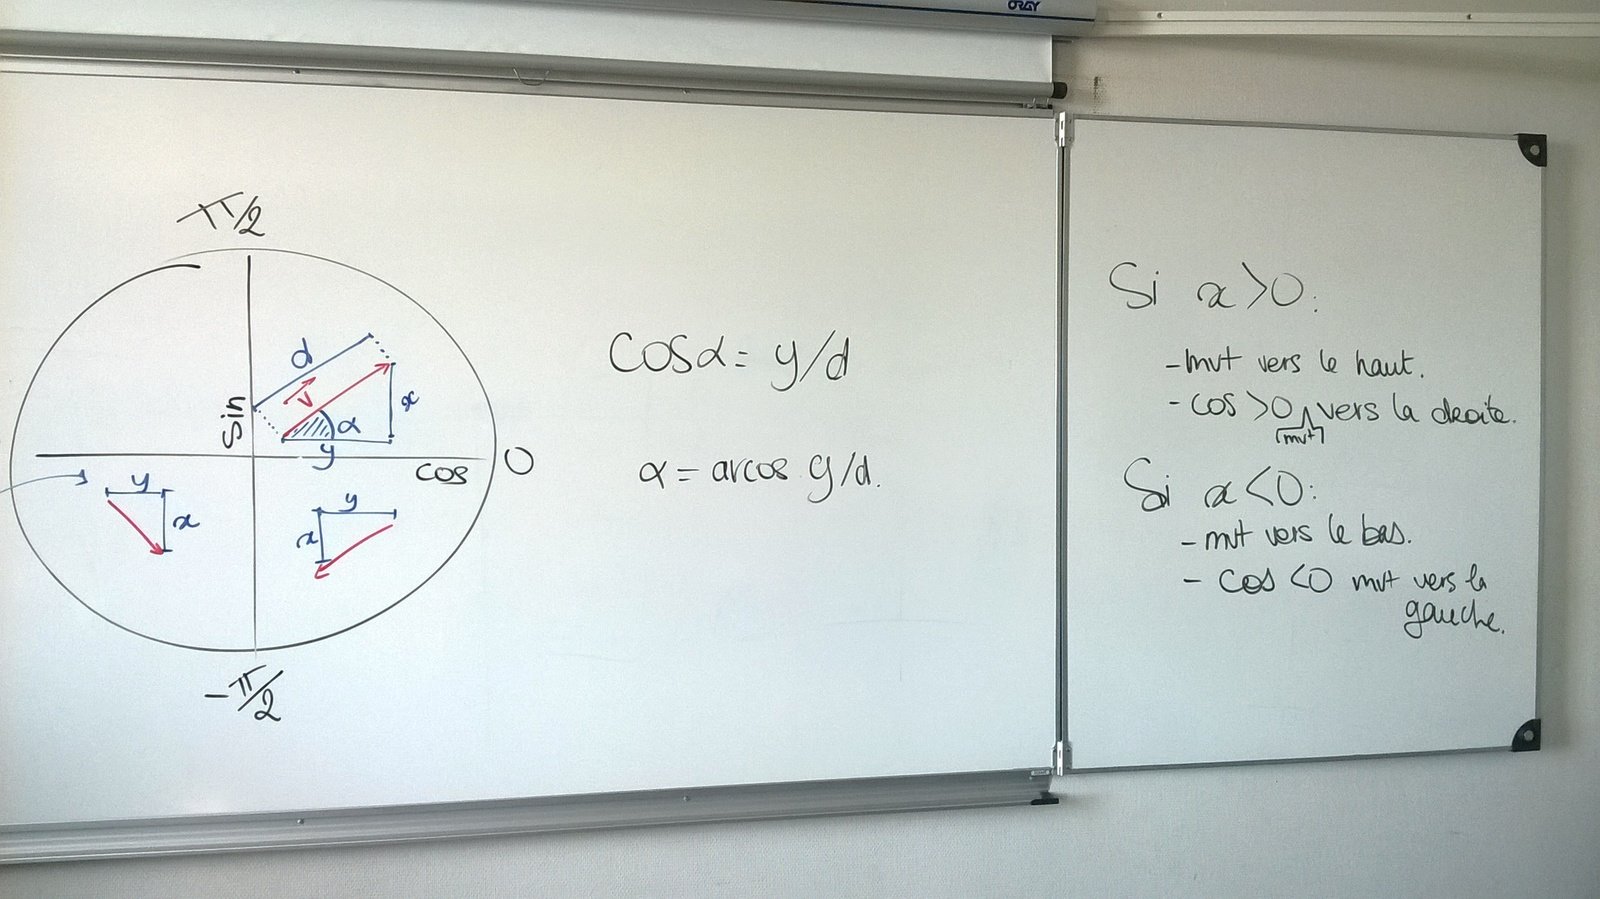 ORAY
π/2
d
v
α
x
y
sin
cos
0
y
x
y
x
-π/2
cosα = y/d
α = arcos y/d.
Si x>0:
- mvt vers le haut.
- cos >0 mvt vers la droite.
Si x<0:
- mvt vers le bas.
- cos <0 mvt vers la
gauche.